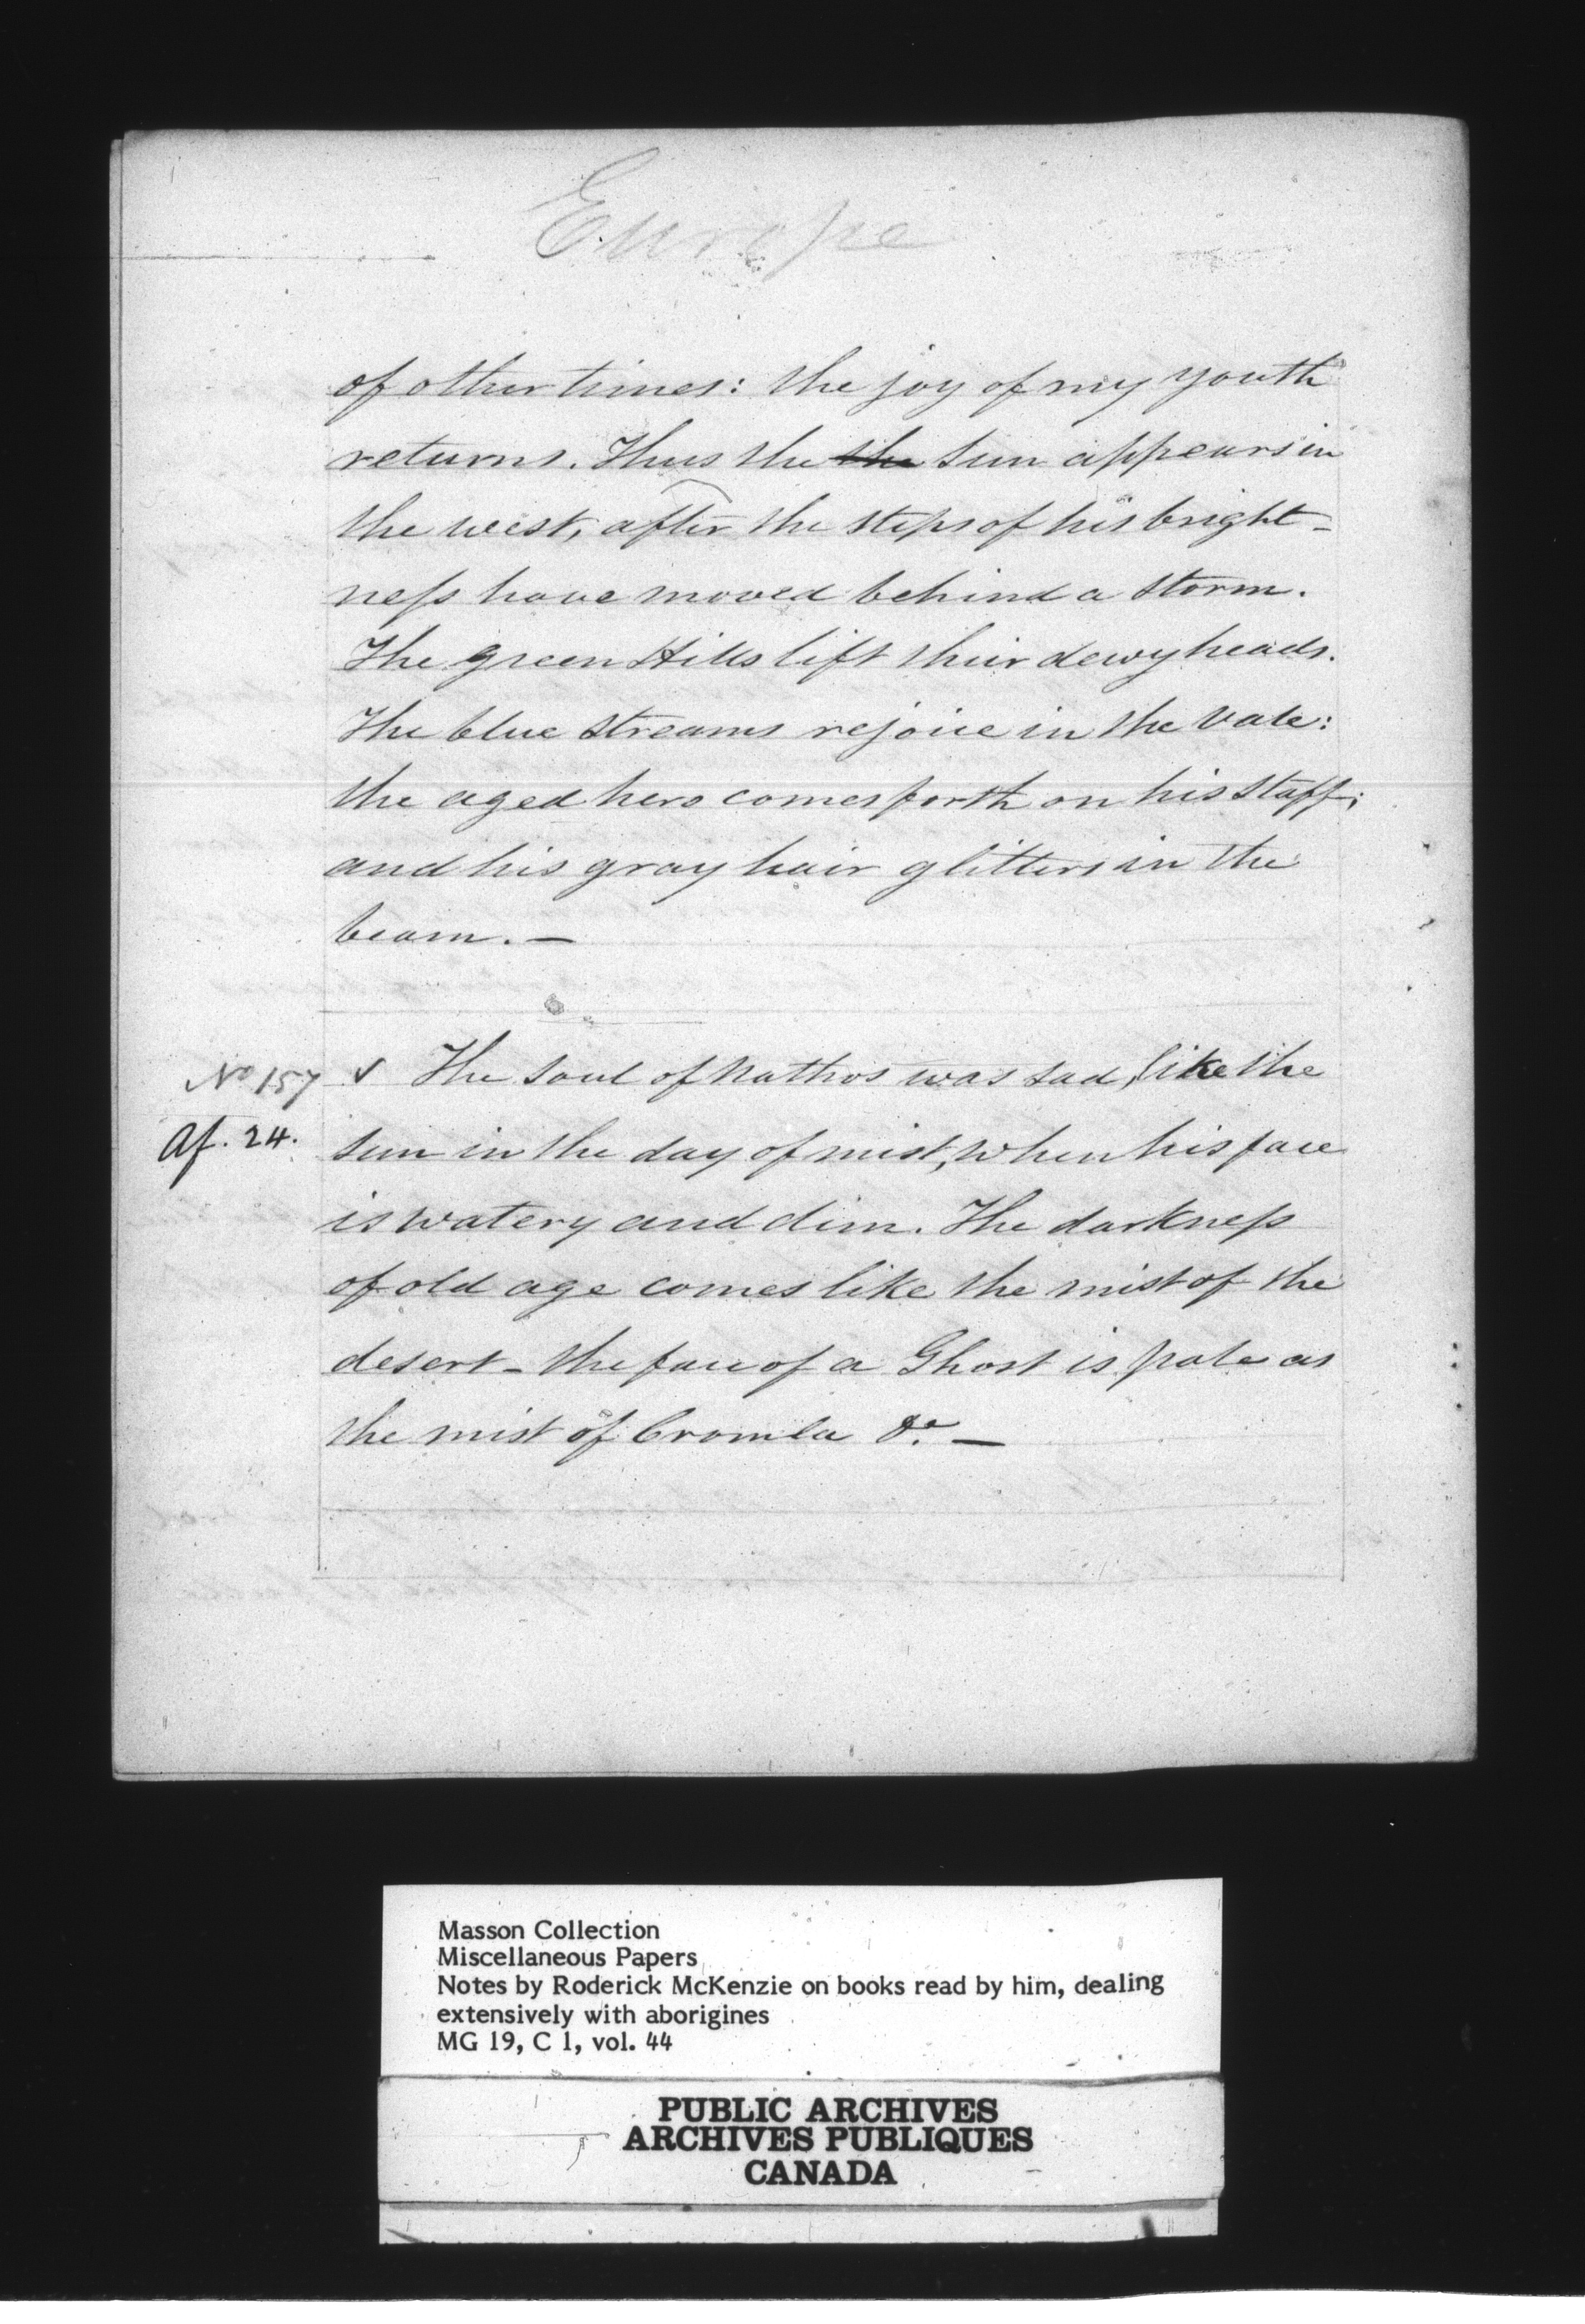 Europe
of other times: the joy of my youth
returns. Thus the the Sun appears in
the west, after the steps of his bright-
neſs have moved behind a storm.
The green Hills lift their dewy heads.
The blue streams rejoice in the vale:
the aged hero comes forth on his staff;
and his gray hair glitters in the
beam. —
No 157 √ The soul of Nathos was sad, like the
Af. 24. sun in the day of mist, when his face
is watery and dim. The darkneſs
of old age comes like the mist of the
desert - the face of a Ghost is pale as
the mist of Cromla &c. —
Masson Collection
Miscellaneous Papers
Notes by Roderick McKenzie on books read by him, dealing
extensively with aborigines
MG 19, C 1, vol. 44
PUBLIC ARCHIVES
ARCHIVES PUBLIQUES
CANADA